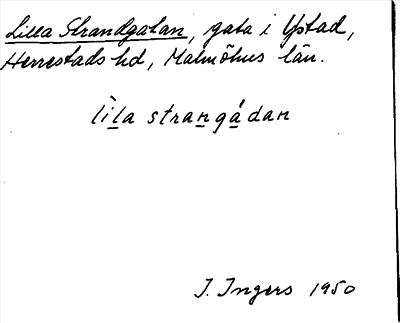 Lilla Strandgatan, gata i Ystad,
Herrestads hd, Malmöhus län.
lìla strangádan
I. Ingers 1950